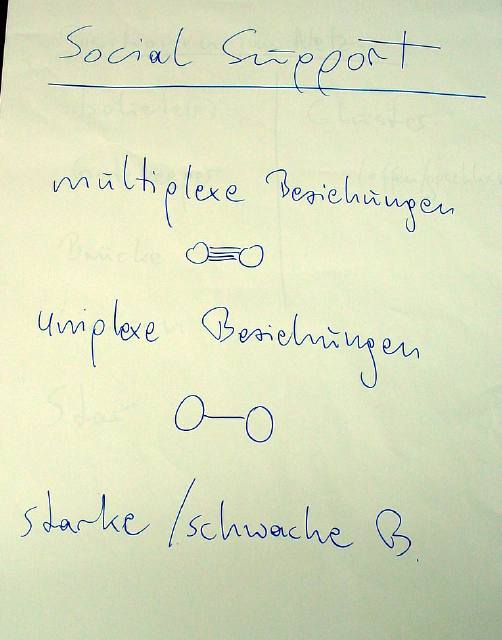 Social Support
multiplexe Beziehungen
uniplexe Beziehungen
starke / schwache B.
Brücke